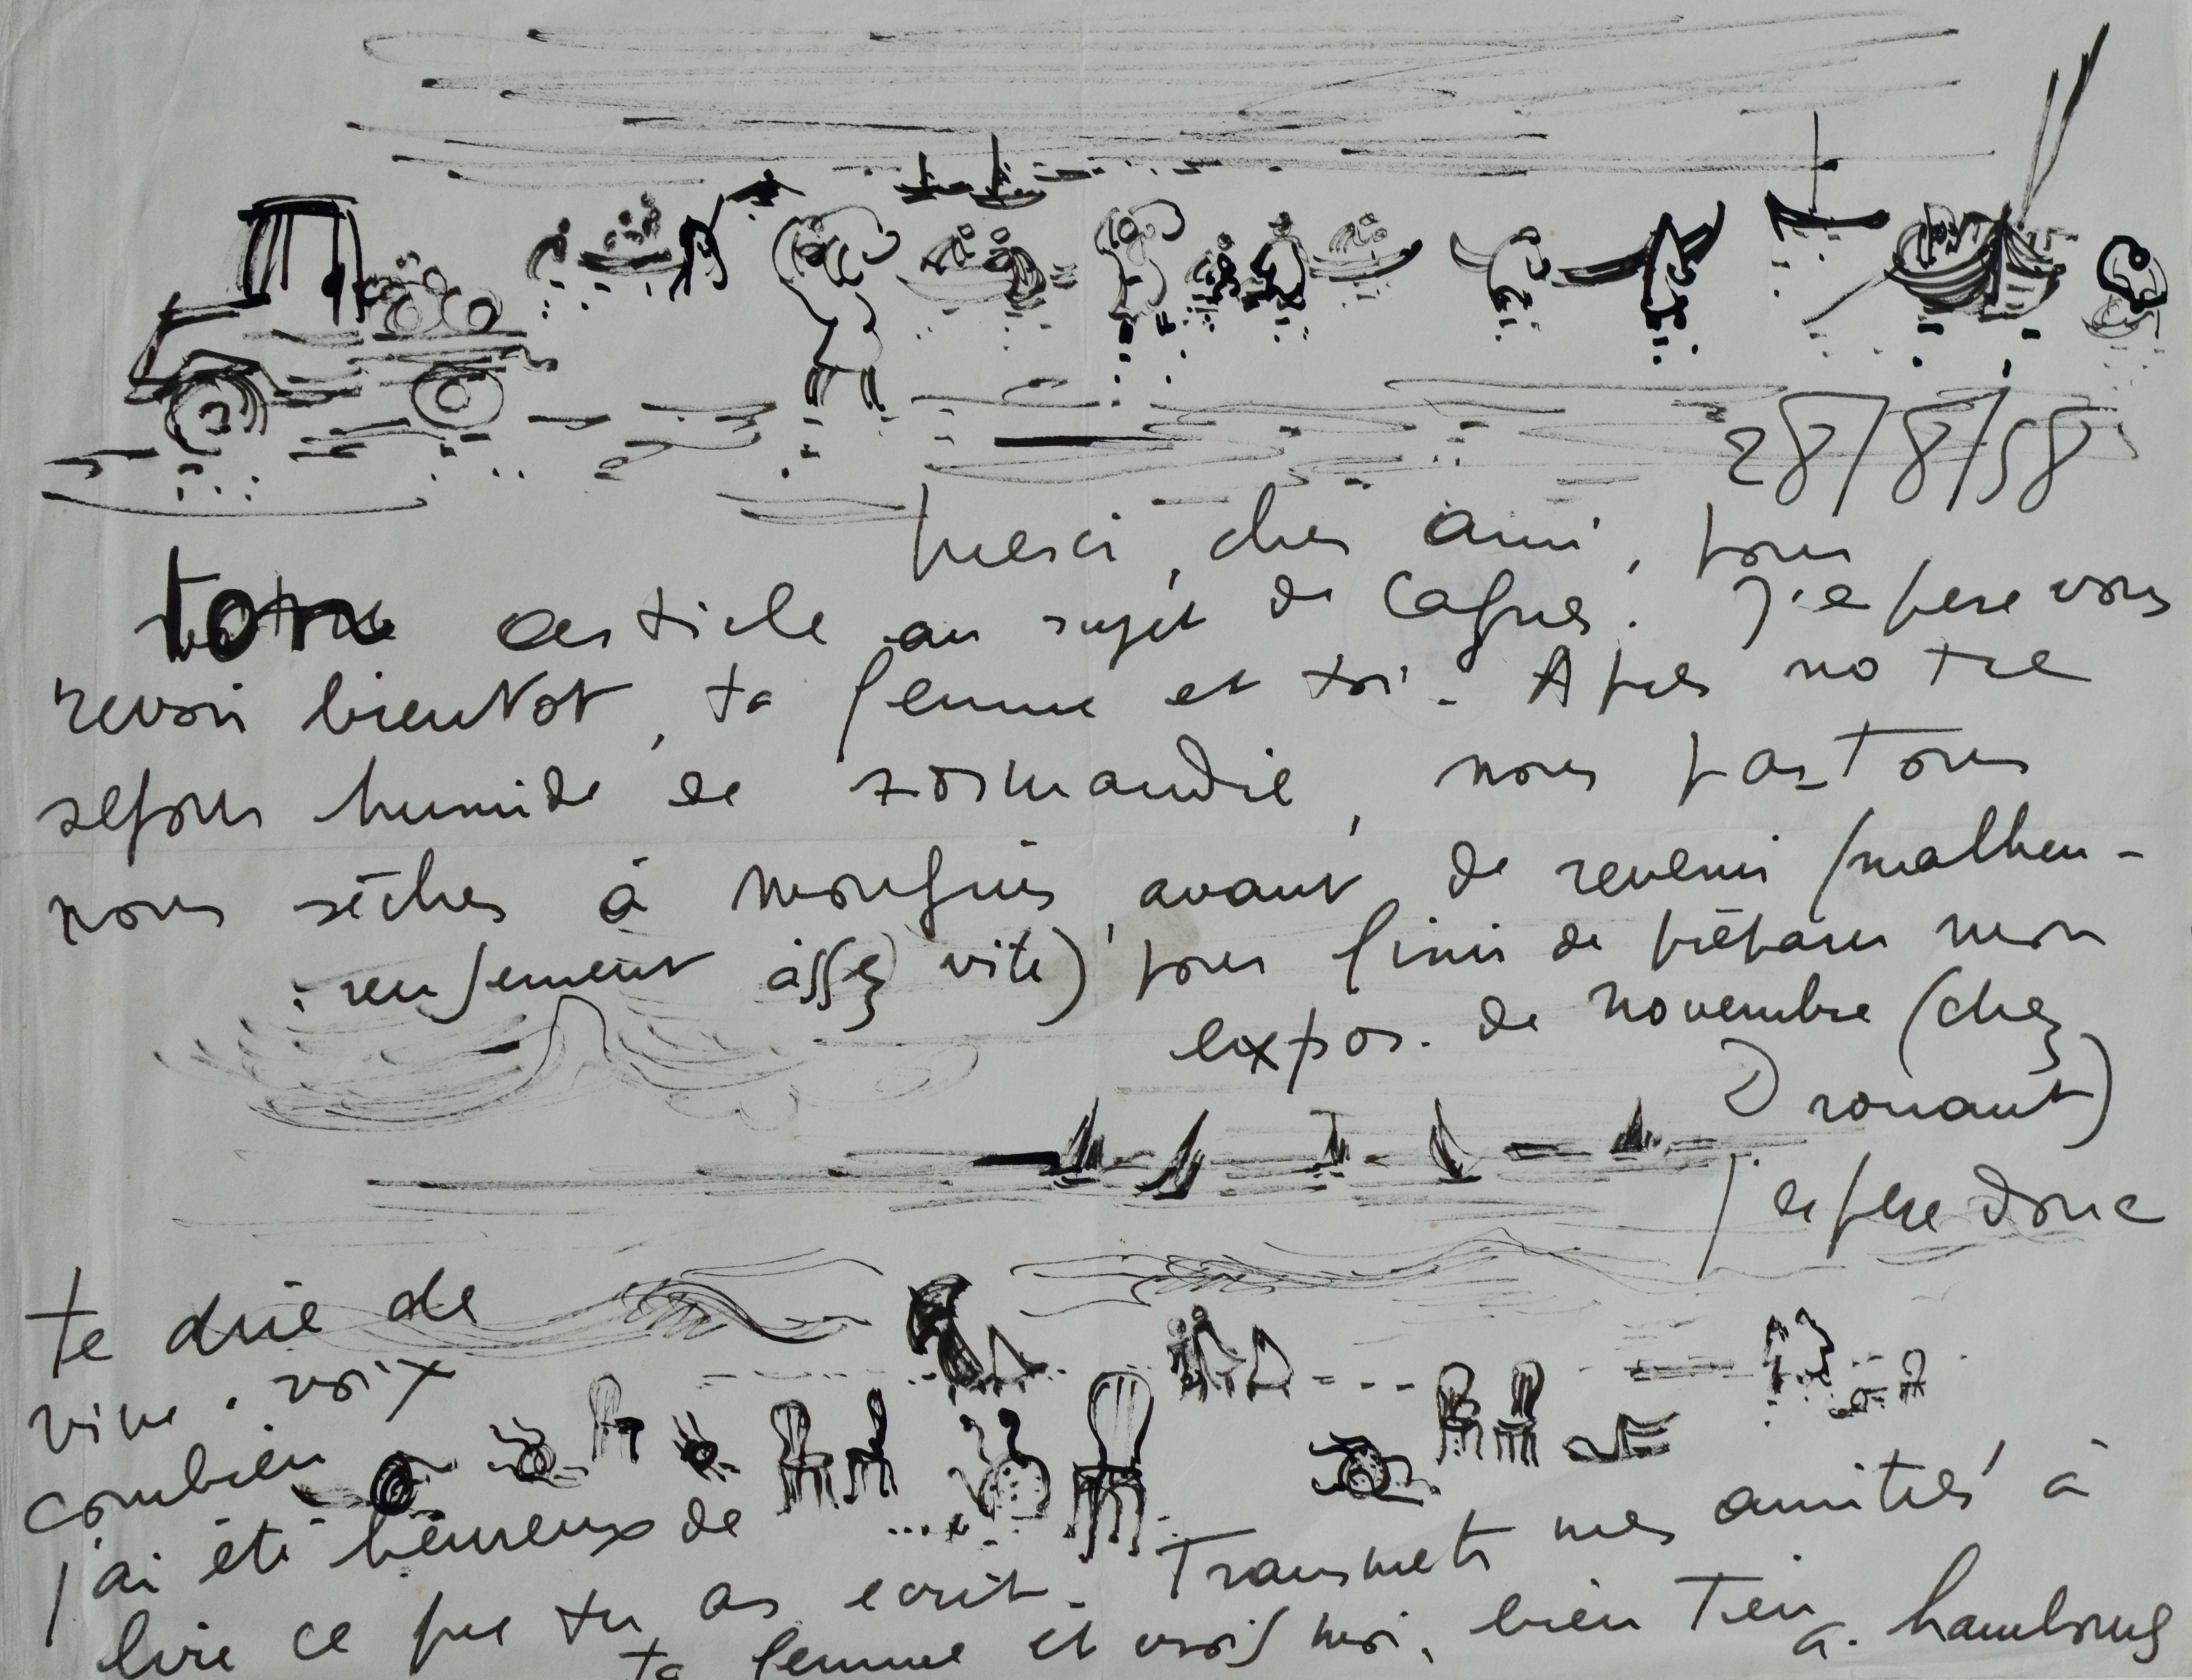 28/8/58
Merci, cher ami, pour
ton article au sujet de Cagnes. J'espere vous
revoir bientôt, ta femme et toi. Après notre
sejour humide en Normandie, nous partons
nous sécher à Mougins, avant de revenir (malheu-
reusement assez vite) pour finir de préparer mon
expos. de novembre (chez
Drouant)
J'espere donc
te dire de
vive voix
combien
j'ai été heureux de
lire ce que tu as ecrit. Transmets mes amitiés à
ta femme et crois moi, bien tien
a. hambourg